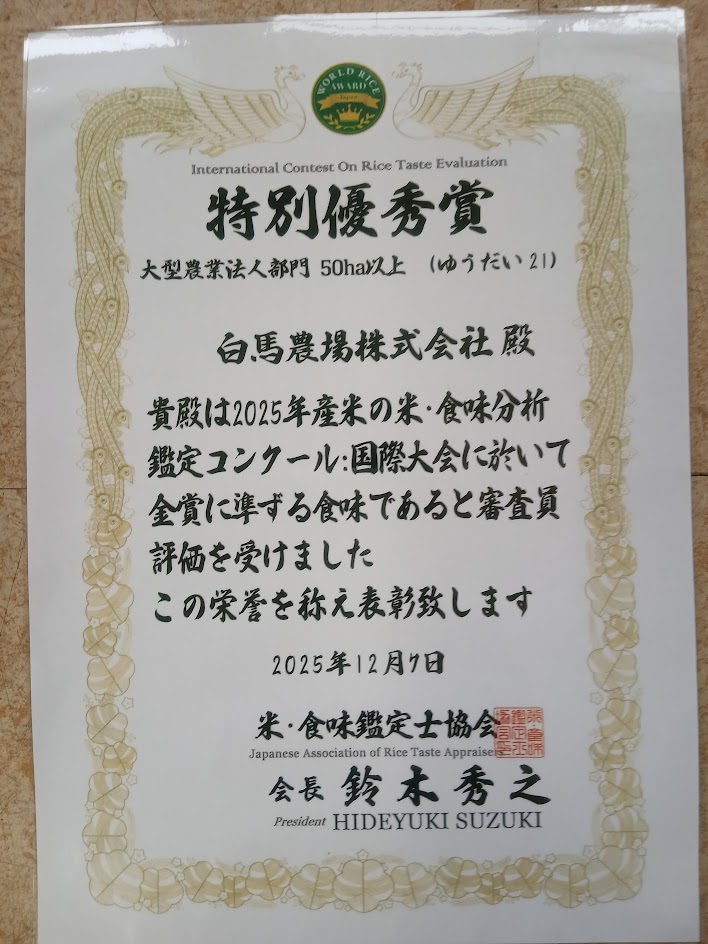 WORLD RICE
AWARD
Japan
International Contest On Rice Taste Evaluation
特別優秀賞
大型農業法人部門 50ha以上 (ゆうだい21)
白馬農場株式会社 殿
貴殿は2025年産米の米･食味分析
鑑定コンクール:国際大会に於いて
金賞に準ずる食味であると審査員
評価を受けました
この栄誉を称え表彰致します
2025年12月7日
米･食味鑑定士協会
Japanese Association of Rice Taste Appraise
会長 鈴木秀之
President HIDEYUKI SUZUKI